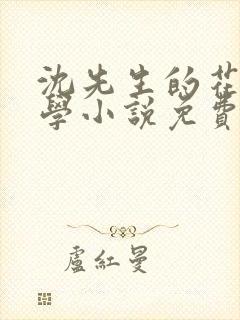 沈先生的花
學小說免費
盧紅曼